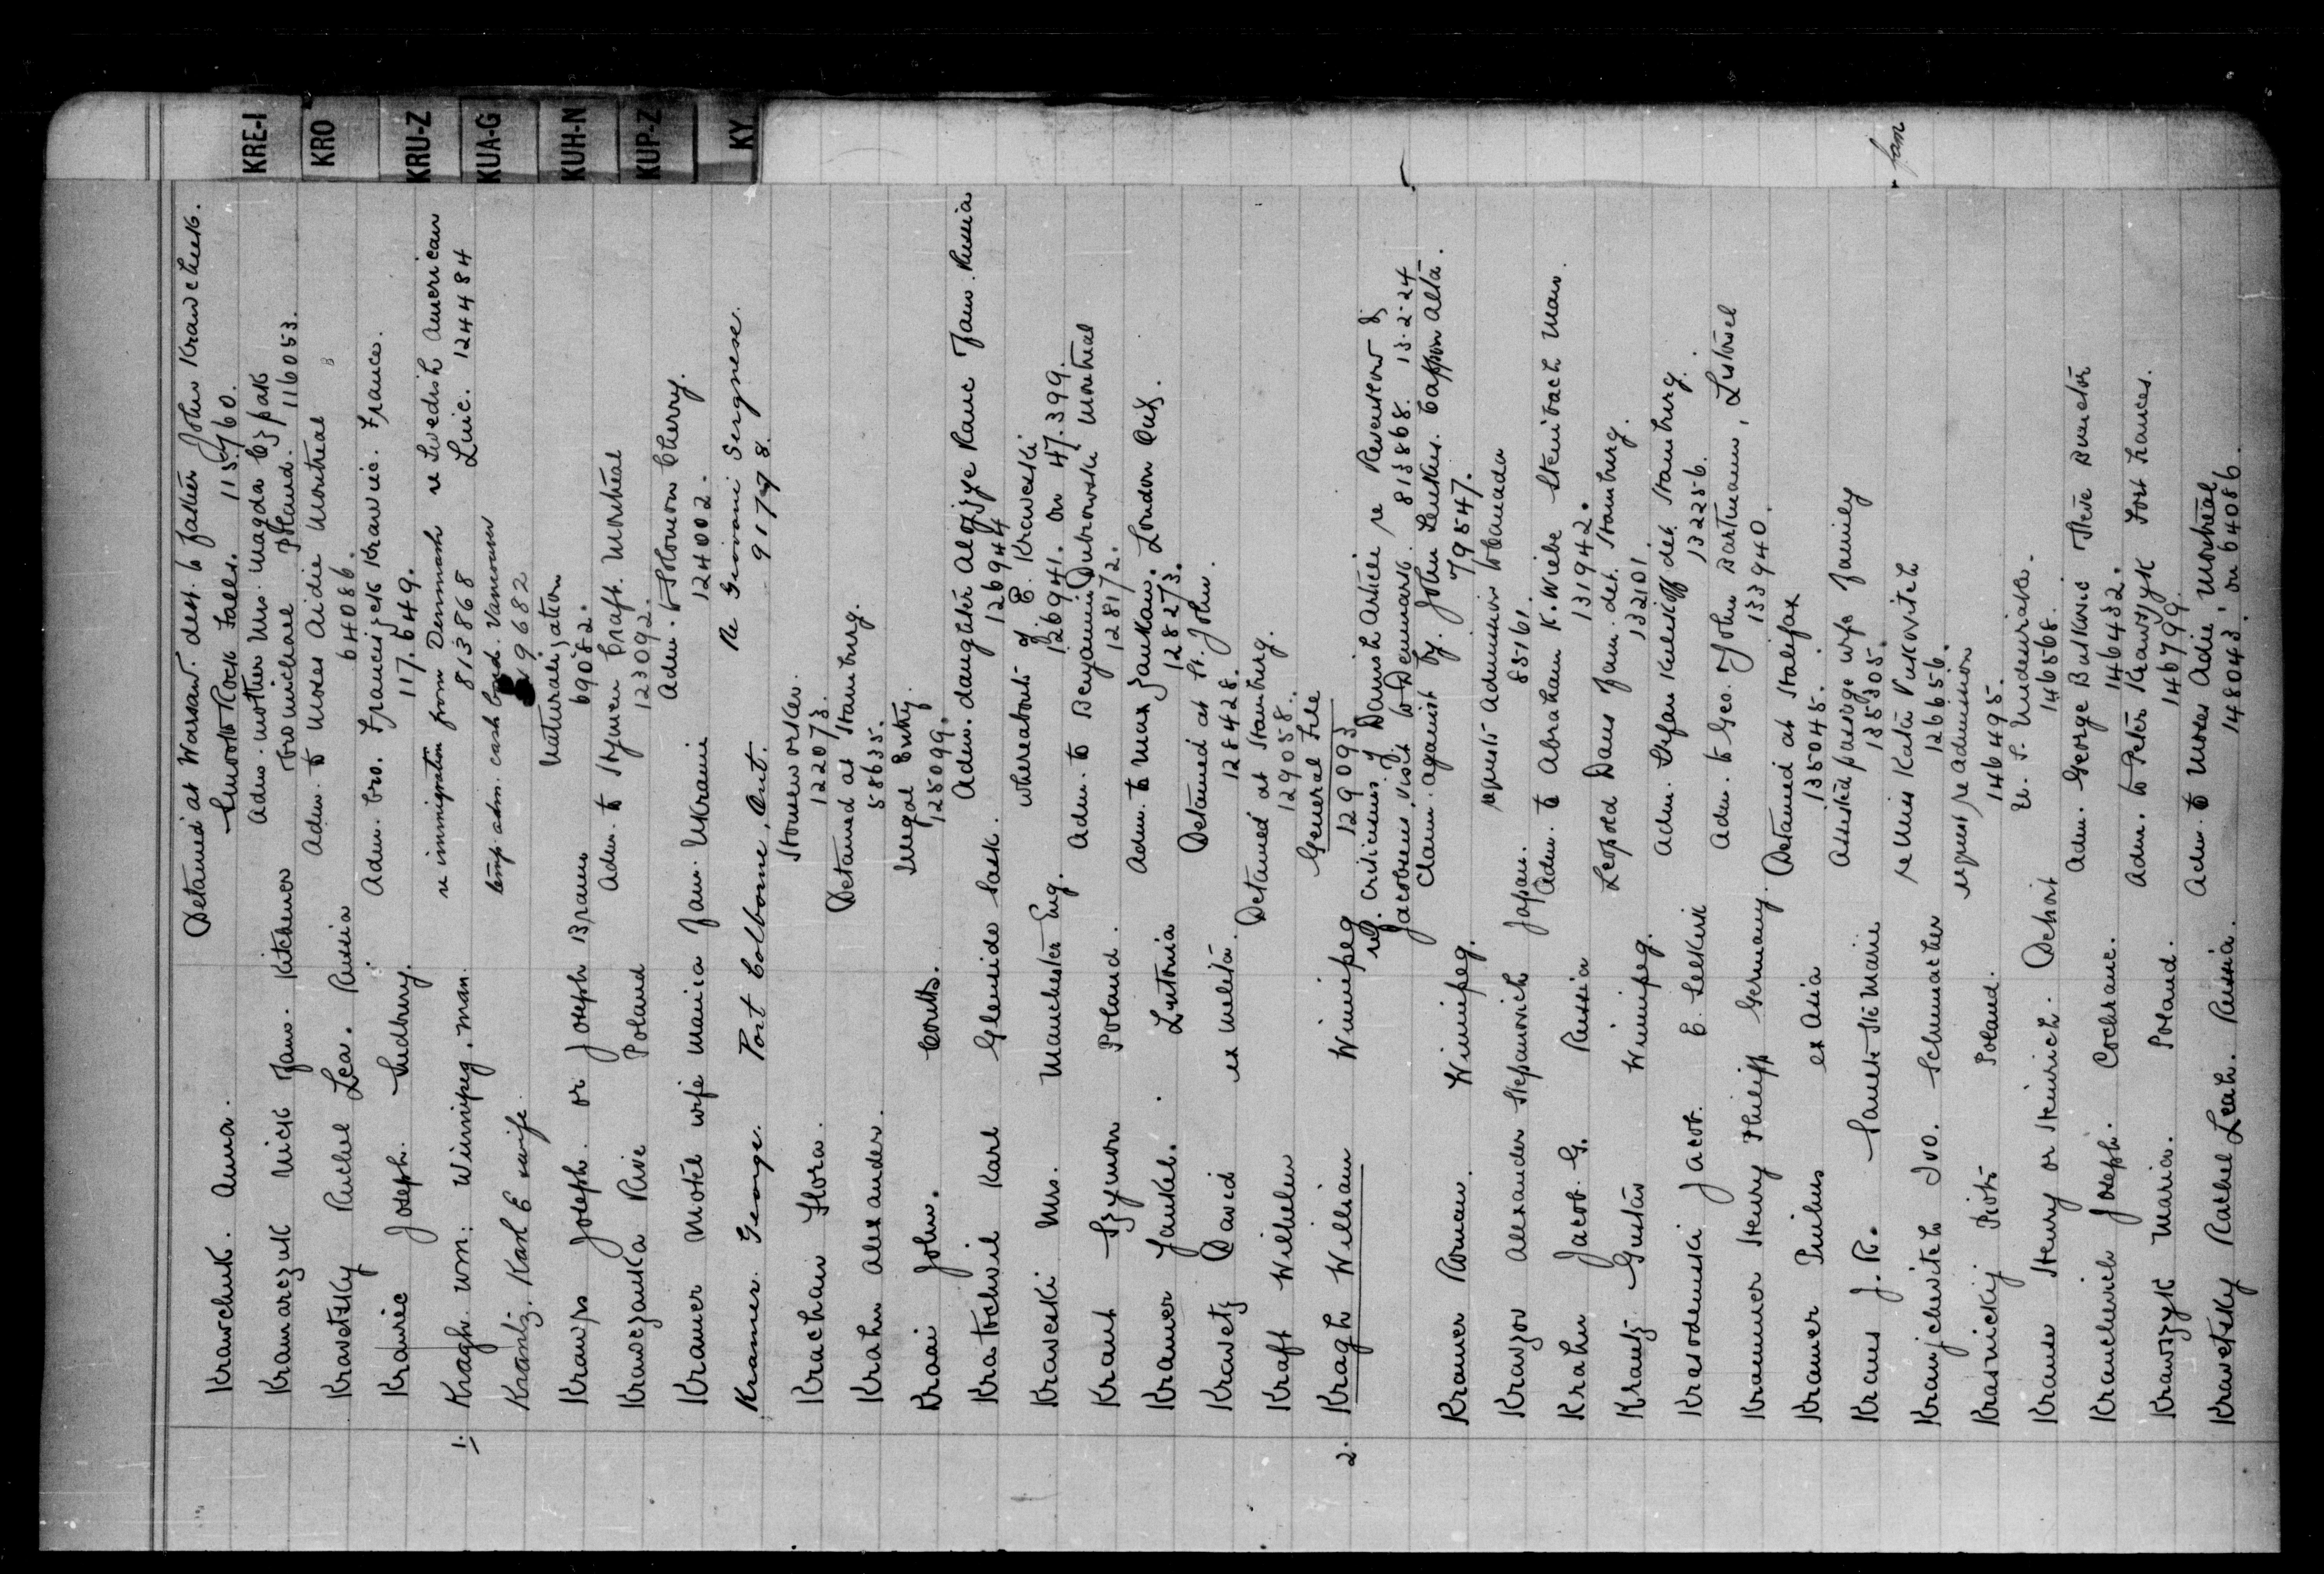 KRE-I
KRO
KRU-Z
KUA-G
KUH-N
KUP-Z
KY
Krawchuk. Anna. Detained at Warsaw. dest. to father John Krawchuk.
Smooth Rock Falls. 115960.
Kramarczuk Nick Fam. Kitchener Adm. mother Mrs. Magda
bro Michael Poland. 116053.
Kravetsky Ruchel Lea. Russia Adm. to Moses Aidie Montreal
64086.
Krawiec Joseph. Sudbury. Adm. bro. Franciszek Krawiec. France.
117.649.
1. Kragh. Wm: Winnipeg. Man. re immigration from Denmark re Swedish American
813868 Line. 124484
Krantz, Karl E wife. temp. adm. cash bond. Vancouver
Krawps Joseph. or Joseph Brauns Naturalization
69082.
Krawczanka Rive Poland Adm. to Hymen Craft. Montreal
123092.
Kramer Motel wife Mania Fam. Ukraine Adm. to Solomon Cherry.
124002.
Kramer. George. Port Colborne, Ont. Re Giovanni Sergnese.
Krachan Flora. Stoneworker.
122073.
Krahn Alexander. Detained at Hamburg.
58635.
Kraai John. Coutts. Illegal Entry.
125099.
Kratochvil Karl Glenside Sask. Adm. daughter Alojzye Kanc Fam. Russia
126944
Kraweski Mrs. Manchester Eng. whereabouts of E. Kraweski
126941. on 47.399.
Kraut Szymon Poland. Adm. to Benjamin Dubrowski Montreal
128172.
Kramer Jankel. Adm. to Max London Ont.
128273.
Kravetz David ex Melita. Detained at St. John.
128428.
Kraft Wilhelm Detained at Hamburg.
129058.
2. Kragh William Winnipeg General File
129093
ref. criticisms of Danish Article re
Jacobsens visit to Denmark. 813868. 13-2-24
Kramer Roman. Winnipeg. Claim against by. John Lenkus. Alta.
79547.
Krawzov Alexander Stepanovich Japan. requests Admission to Canada
85161.
Krahn Jacob. G. Russia Adm. to Abraham K. Wiebe Steinbach Man.
131942.
Krantz Gustav Winnipeg. Leopold Dams Fam. det. Hamburg.
132101
Krasodemski Jacob. E. Selkirk Adm. Stefan det. Hamburg.
132256.
Krammer Henry Philipp Germany. Adm. to Geo. & John Bartmann, Listowel
133940.
Kramer Pinihus ex Asia Detained at Halifax
135045.
Kraus J. R. Sault Ste Marie Assisted passage wife family fam
135305.
Kranjchevitch Ivo. Schumacher re Miss Kata Vukovitch
126656.
Krasnickij Piotr Poland. request re admission
146495.
Krause Henry or Heinrich. Detroit U. S. Undesirable.
146568.
Krancherich Joseph. Cochrane. Adm. George
146432.
Krawzyk Maria. Poland. Adm. to Peter Krawzyk Fort Frances.
146799.
Krawetsky Rachel Leah. Russia. Adm. to Moses Adie Montreal
148043. on 64086.